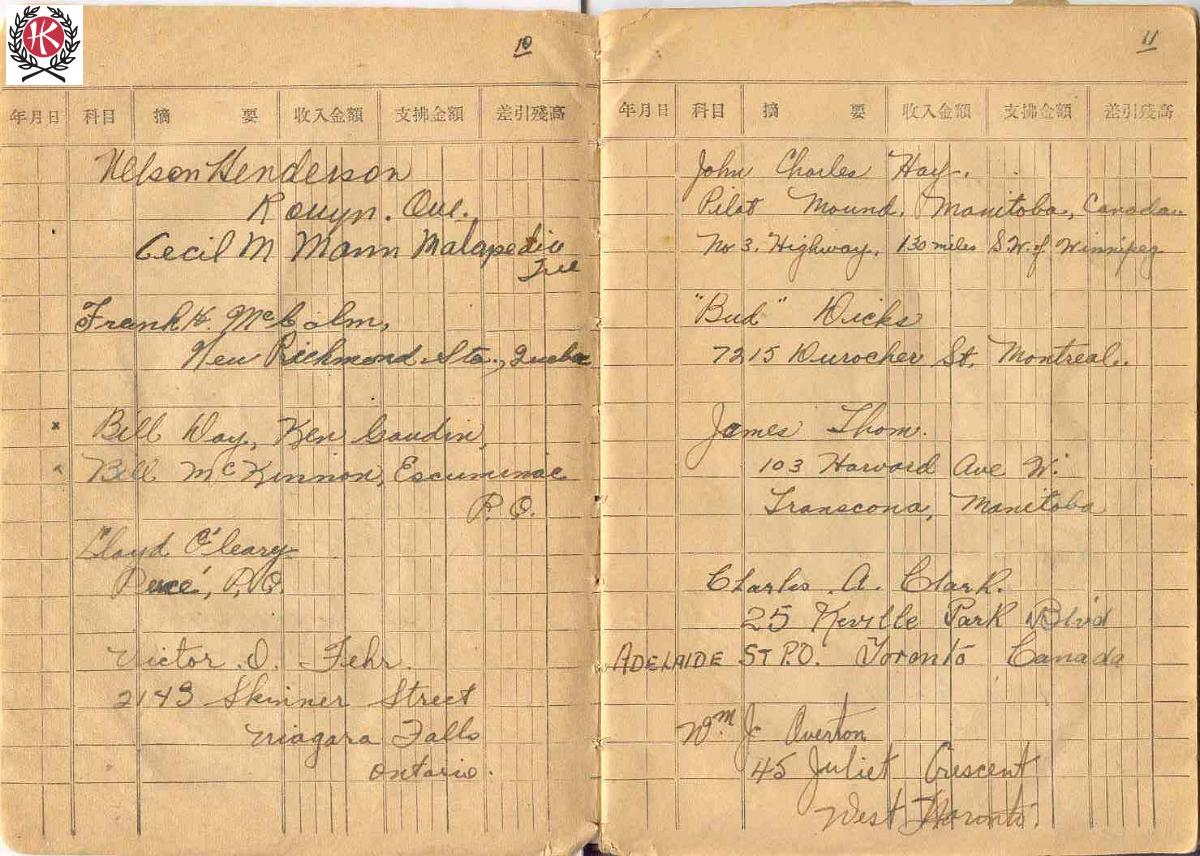 HK
10
年月日 科目 摘要 收入金額 支拂金額 差引殘高
Nelson Henderson
Rouyn. Que.
Cecil M Mann Matapedia
Que
Frank H. McColm,
New Richmond Sta., Quebec
x Bill Day, Ken Gaudin,
x Bill McKinnon, Escuminac
P.Q.
Lloyd O'leary
P.Q.
Victor . D. Fehr.
2143 Skinner Street
Niagara Falls
Ontario.
11
年月日 科目 摘要 收入金額 支拂金額 差引殘高
John Charles Hay.
Pilot Mound, Manitoba, Canada
No 3. Highway. 130 miles S.W. of Winnipeg
"Bud" Dicks
7215 Durocher St. Montreal.
James Thom.
103 Harvard Ave W.
Transcona, Manitoba
Charles . A. Clark.
25 Park Blvd
ADELAIDE ST P.O. Toronto Canada
Wm J. Overton
45 Juliet Crescent
West Toronto.